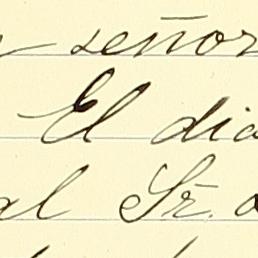 señor
El dia
al Sr.